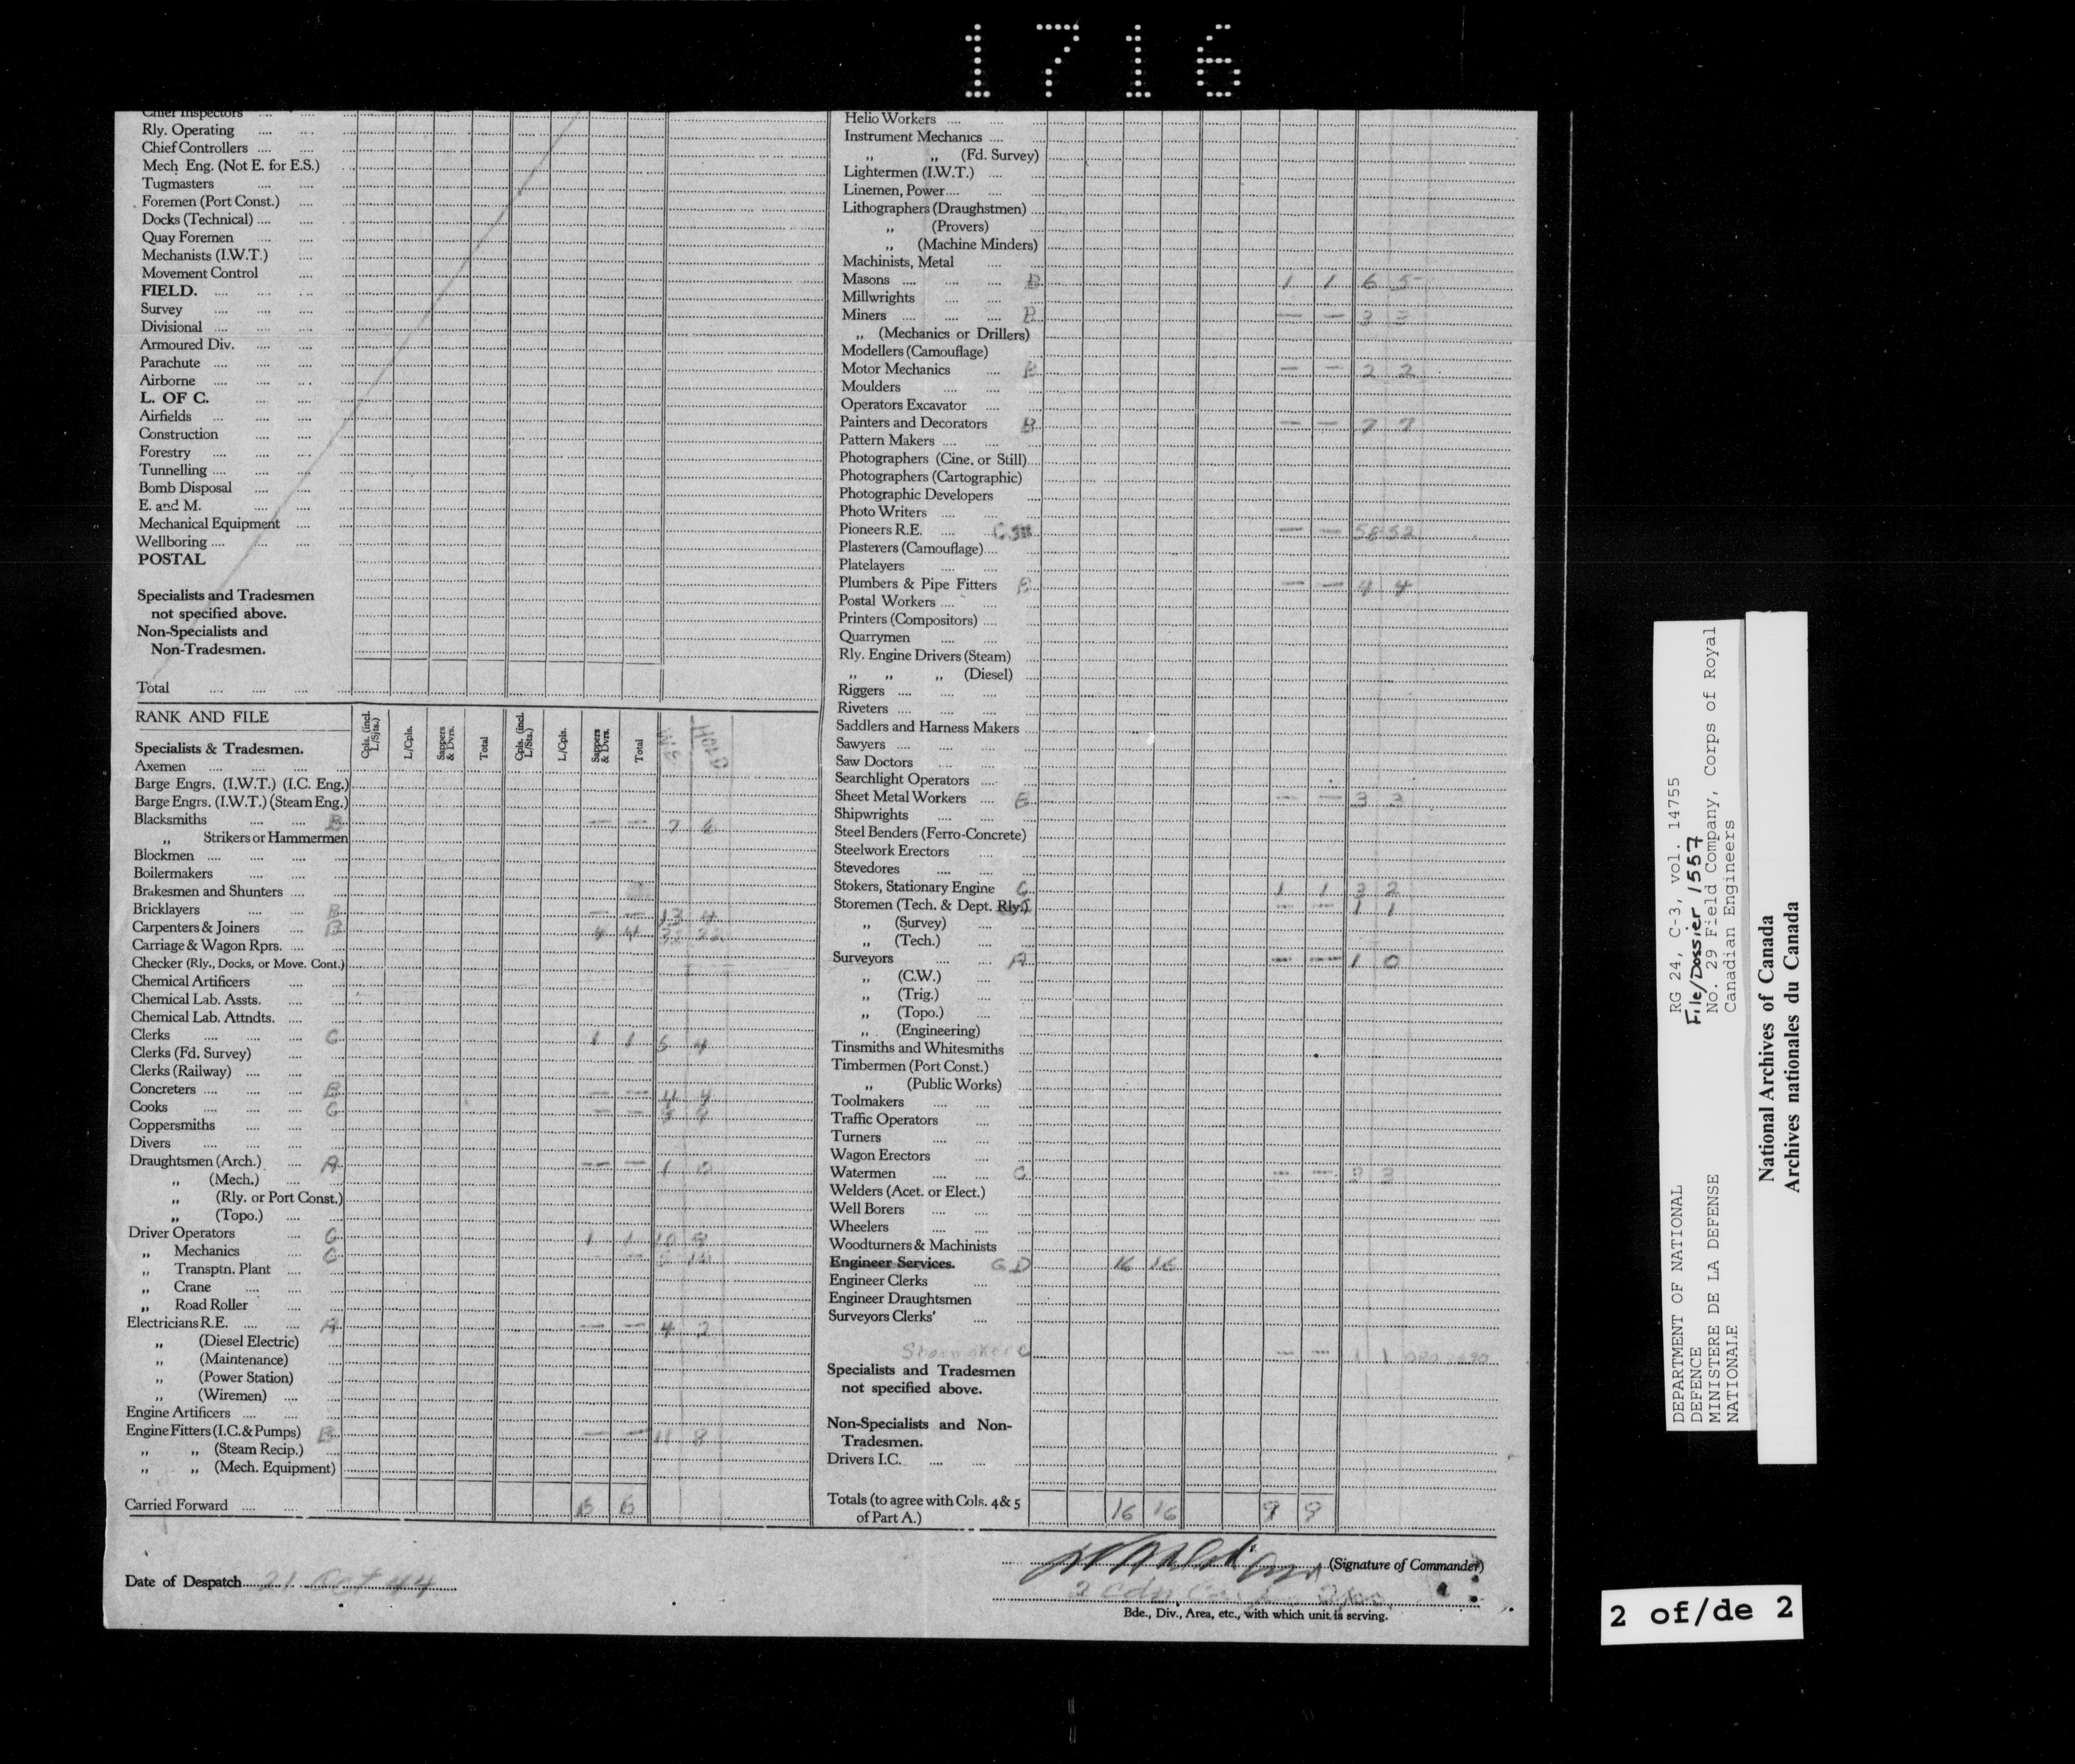 1716
Chief Inspectors .... ....
Rly. Operating .... ....
Chief Controllers .... ....
Mech Eng. (Not E. for E.S.)
Tugmasters .... ....
Foremen (Port Const.) ....
Docks (Technical) .... ....
Quay Foremen .... ....
Mechanists (I.W.T.) ....
Movement Control ....
FIELD. .... .... ....
Survey .... .... ....
Divisional .... .... ....
Armoured Div. .... ....
Parachute .... .... ....
Airborne .... .... ....
L. OF C. .... ....
Airfields .... .... ....
Construction .... ....
Forestry .... .... ....
Tunnelling .... .... ....
Bomb Disposal .... ....
E. and M. .... ....
Mechanical Equipment ....
Wellboring .... .... ....
POSTAL
Specialists and Tradesmen
not specified above.
Non-Specialists and
Non-Tradesmen.
Total .... .... .... ....
RANK AND FILE
Cpls. (incl. L/Sjts.) L/Cpls. Sappers & Dvrs. Total Cpls. (incl. L/Sts.) L/Cpls. Sappers & Dvrs. Total
Specialists & Tradesmen.
Axemen .... .... ....
Barge Engrs. (I.W.T.) (I.C. Eng.)
Barge Engrs. (I.W.T.) (Steam Eng.)
Blacksmiths .... .... B — — 7 6
,, Strikers or Hammermen
Blockmen .... .... ....
Boilermakers .... ....
Brakesmen and Shunters ....
Bricklayers .... .... B — — 13 4
Carpenters & Joiners .... B 4 4 22
Carriage & Wagon Rprs. ....
Checker (Rly., Docks, or Move. Cont.)
Chemical Artificers ....
Chemical Lab. Assts. ....
Chemical Lab. Attndts. ....
Clerks .... .... .... C 1 1 5 4
Clerks (Fd. Survey) ....
Clerks (Railway) .... ....
Concreters .... .... .... B — — 4 4
Cooks .... .... .... C — — 9 9
Coppersmiths .... ....
Divers .... .... ....
Draughtsmen (Arch.) .... A — — 1 0
,, (Mech.) ....
,, (Rly. or Port Const.)
,, (Topo.) ....
Driver Operators .... C 1 1 10 9
,, Mechanics .... C
,, Transptn. Plant ....
,, Crane .... ....
,, Road Roller ....
Electricians R.E. .... .... A — — 4 2
,, (Diesel Electric)
,, (Maintenance)
,, (Power Station)
,, (Wiremen) ....
Engine Artificers .... ....
Engine Fitters (I.C. & Pumps) B — — 11 8
,, ,, (Steam Recip.)
,, ,, (Mech. Equipment)
Carried Forward .... .... 6 6
Date of Despatch 21 Oct 44
Helio Workers .... ....
Instrument Mechanics ....
,, ,, (Fd. Survey)
Lightermen (I.W.T.) ....
Linemen, Power .... ....
Lithographers (Draughstmen)
,, (Provers)
,, (Machine Minders)
Machinists, Metal ....
Masons .... .... .... B 1 1 6 5
Millwrights .... ....
Miners .... .... .... B — — 3 3
,, (Mechanics or Drillers)
Modellers (Camouflage)
Motor Mechanics .... B — — 2 2
Moulders .... ....
Operators Excavator ....
Painters and Decorators B — — 7 7
Pattern Makers .... ....
Photographers (Cine. or Still)
Photographers (Cartographic)
Photographic Developers ....
Photo Writers .... ....
Pioneers R.E. .... — — 58 52
Plasterers (Camouflage) ....
Platelayers .... ....
Plumbers & Pipe Fitters B — — 4 4
Postal Workers .... ....
Printers (Compositors) ....
Quarrymen .... ....
Rly. Engine Drivers (Steam)
,, ,, ,, (Diesel)
Riggers .... .... ....
Riveters .... .... ....
Saddlers and Harness Makers
Sawyers .... .... ....
Saw Doctors .... ....
Searchlight Operators ....
Sheet Metal Workers .... B — — 3 3
Shipwrights .... ....
Steel Benders (Ferro-Concrete)
Steelwork Erectors ....
Stevedores .... ....
Stokers, Stationary Engine C 1 1 3 2
Storemen (Tech. & Dept. Rly.) — — 1 1
,, (Survey) ....
,, (Tech.) ....
Surveyors .... .... A — — 1 0
,, (C.W.) ....
,, (Trig.) ....
,, (Topo.) ....
,, (Engineering)
Tinsmiths and Whitesmiths
Timbermen (Port Const.)
,, (Public Works)
Toolmakers .... ....
Traffic Operators ....
Turners .... ....
Wagon Erectors ....
Watermen .... .... C — — 3 3
Welders (Acet. or Elect.)
Well Borers .... ....
Wheelers .... ....
Woodturners & Machinists
Engineer Services. G D 16 16
Engineer Clerks ....
Engineer Draughtsmen
Surveyors Clerks' ....
Shoemakers C — — 1 1
Specialists and Tradesmen
not specified above.
Non-Specialists and Non-
Tradesmen.
Drivers I.C. .... ....
Totals (to agree with Cols. 4 & 5 16 16 9 9
of Part A.)
(Signature of Commander)
2 Cdn
Bde., Div., Area, etc., with which unit is serving.
RG 24, C-3, vol. 14755
File/Dossier 1557
No. 29 Field Company, Corps of Royal
Canadian Engineers
DEPARTMENT OF NATIONAL
DEFENCE
MINISTERE DE LA DEFENSE
NATIONALE
National Archives of Canada
Archives nationales du Canada
2 of/de 2